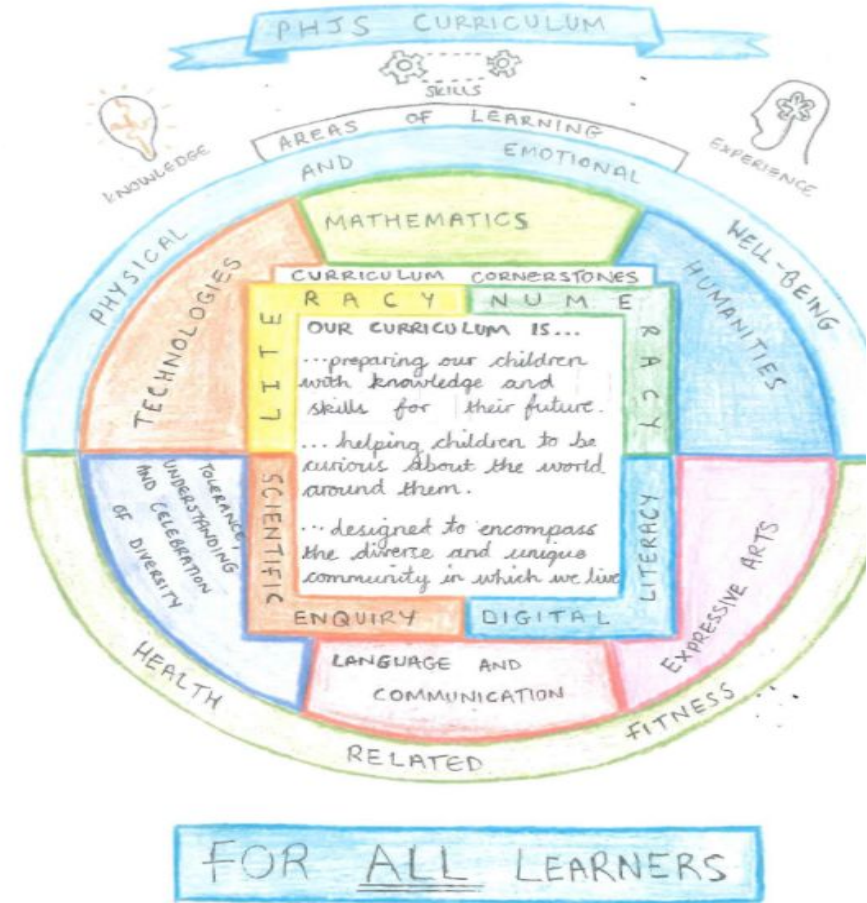 PHJS CURRICULUM
SKILLS
KNOWLEDGE
EXPERIENCE
AREAS OF LEARNING
PHYSICAL AND EMOTIONAL WELL-BEING
TECHNOLOGIES
MATHEMATICS
HUMANITIES
CURRICULUM CORNERSTONES
LITERACY
NUMERACY
OUR CURRICULUM IS...
...preparing our children
with knowledge and
skills for their future.
...helping children to be
curious about the world
around them.
...designed to encompass
the diverse and unique
community in which we live
SCIENTIFIC
ENQUIRY
DIGITAL
LITERACY
TOLERANCE,
UNDERSTANDING
AND CELEBRATION
OF DIVERSITY
LANGUAGE AND
COMMUNICATION
EXPRESSIVE ARTS
HEALTH RELATED FITNESS
FOR ALL LEARNERS